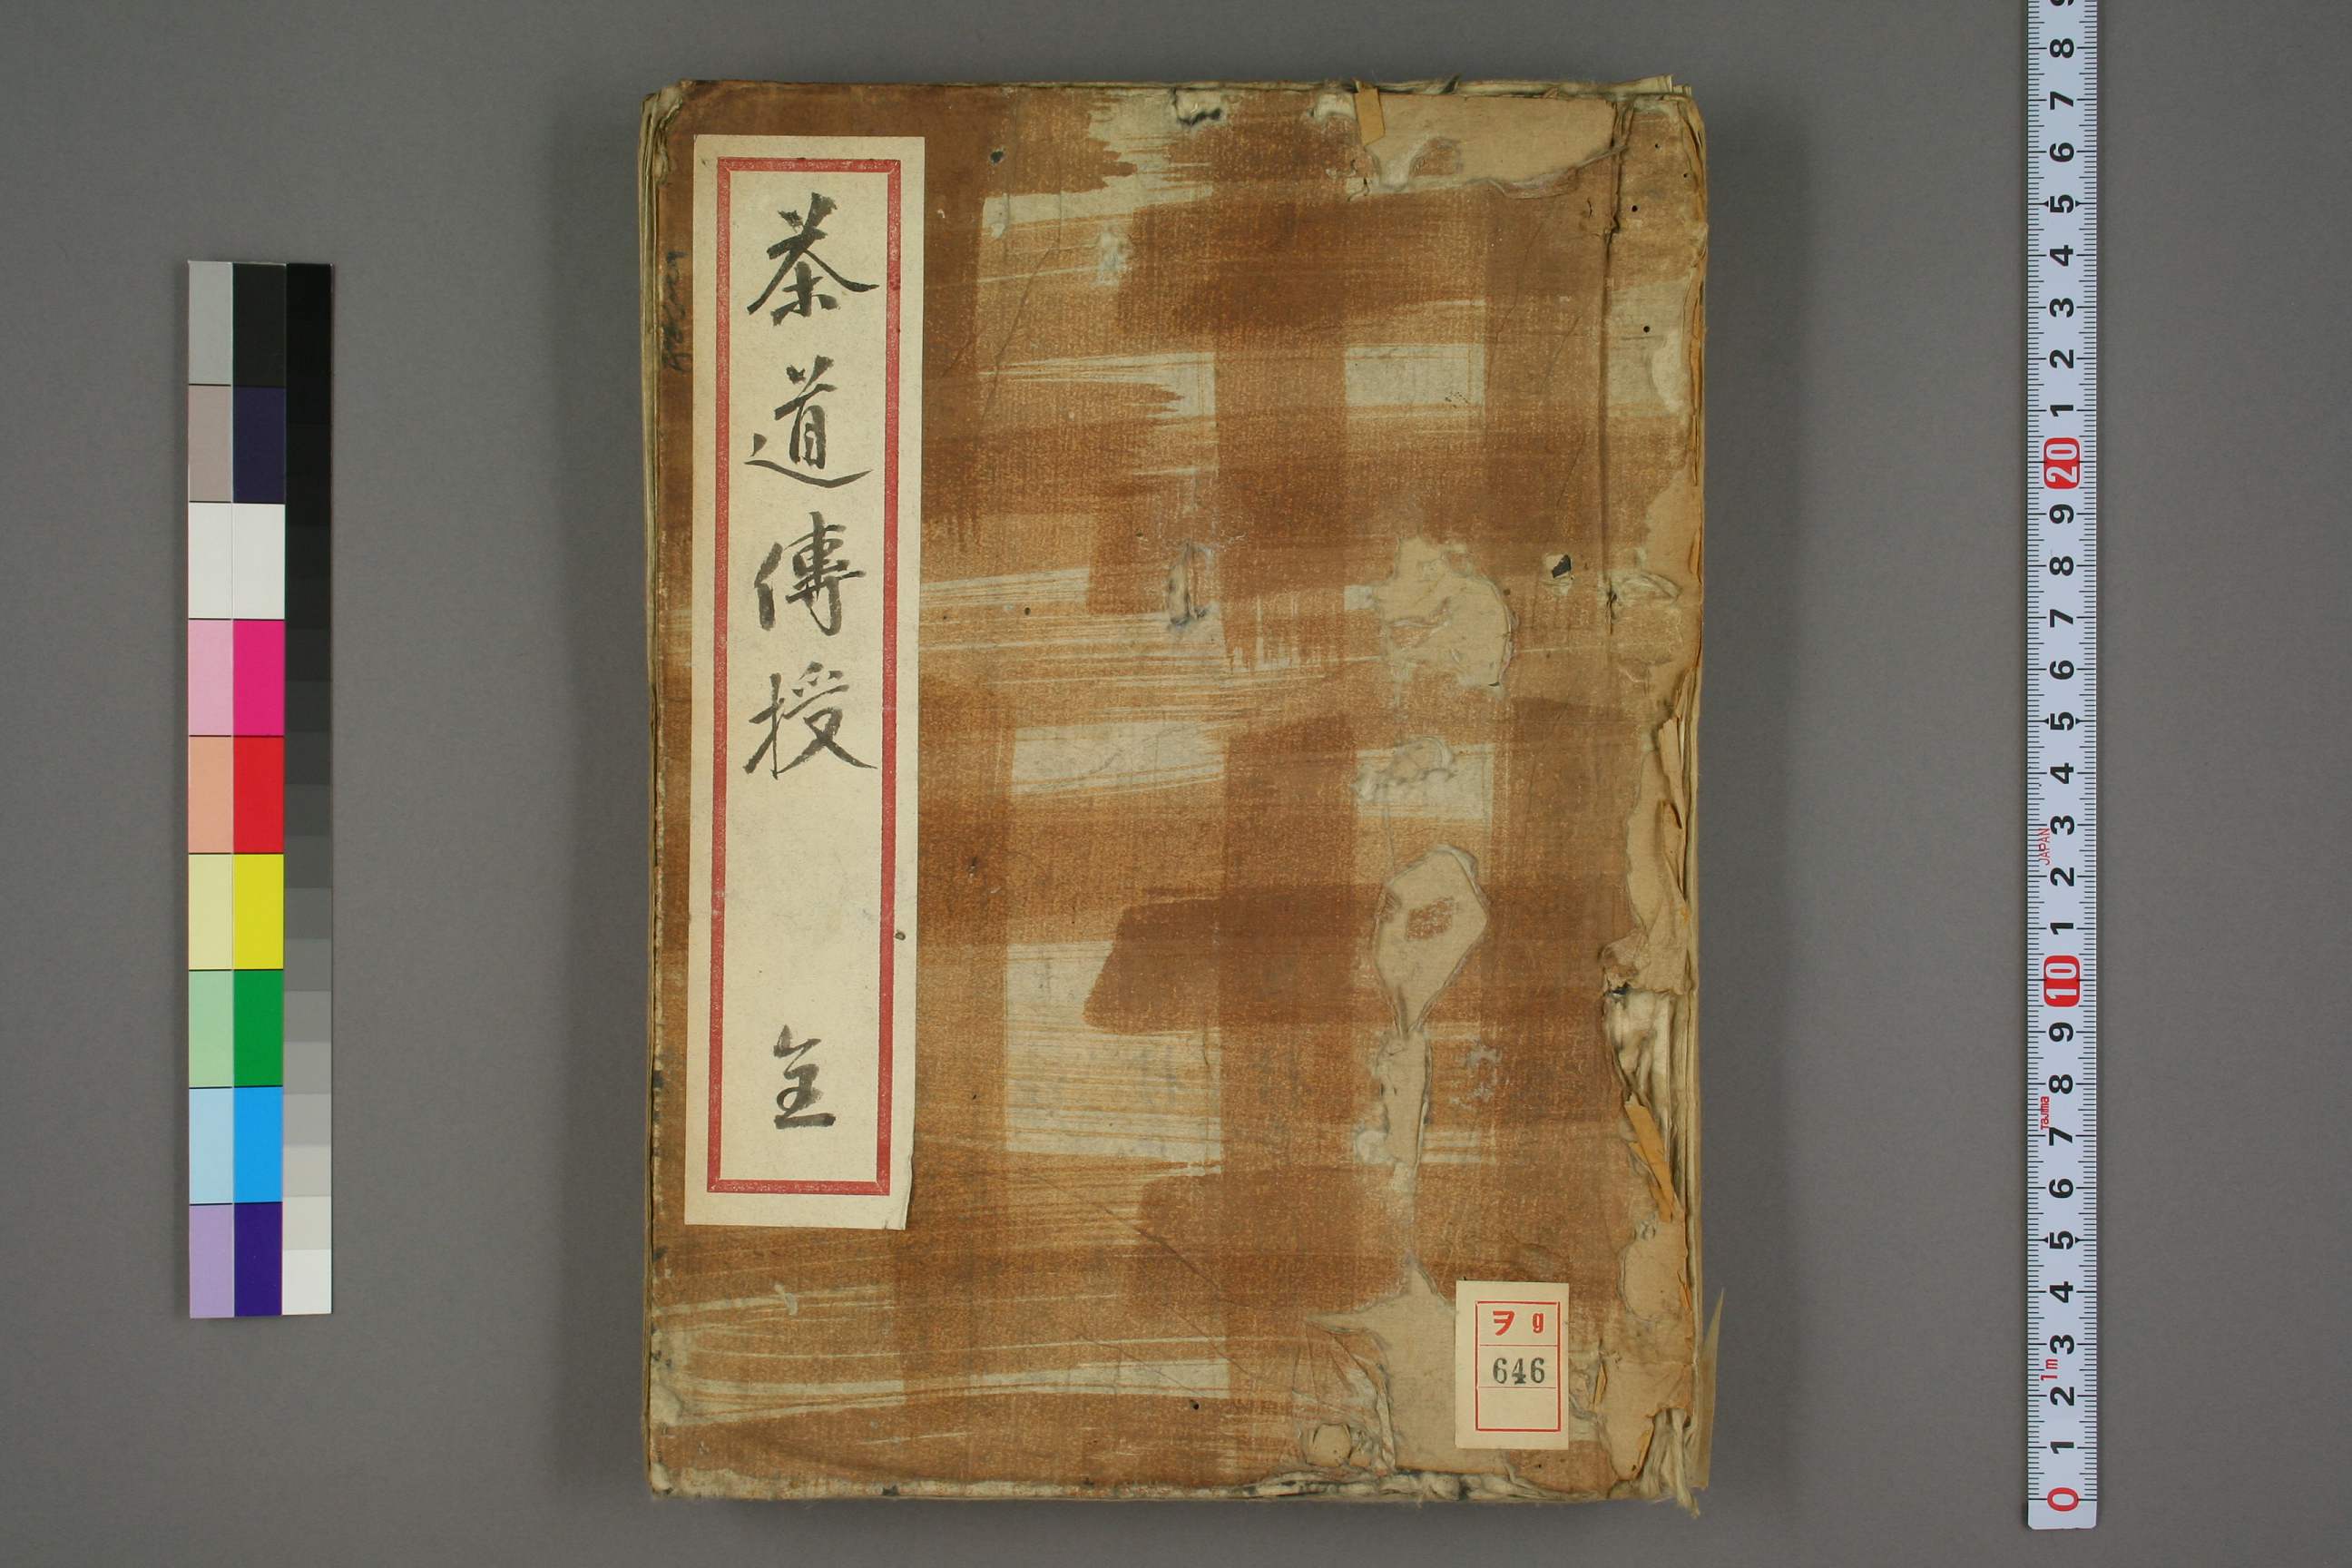 茶道傳授 全
ヲ g
646
9 8 7 6 5 4 3 2 1 20 9 8 7 6 5 4 3 2 1 10 9 8 7 6 5 4 3 2 1 0
JAPAN
Tajima
1m